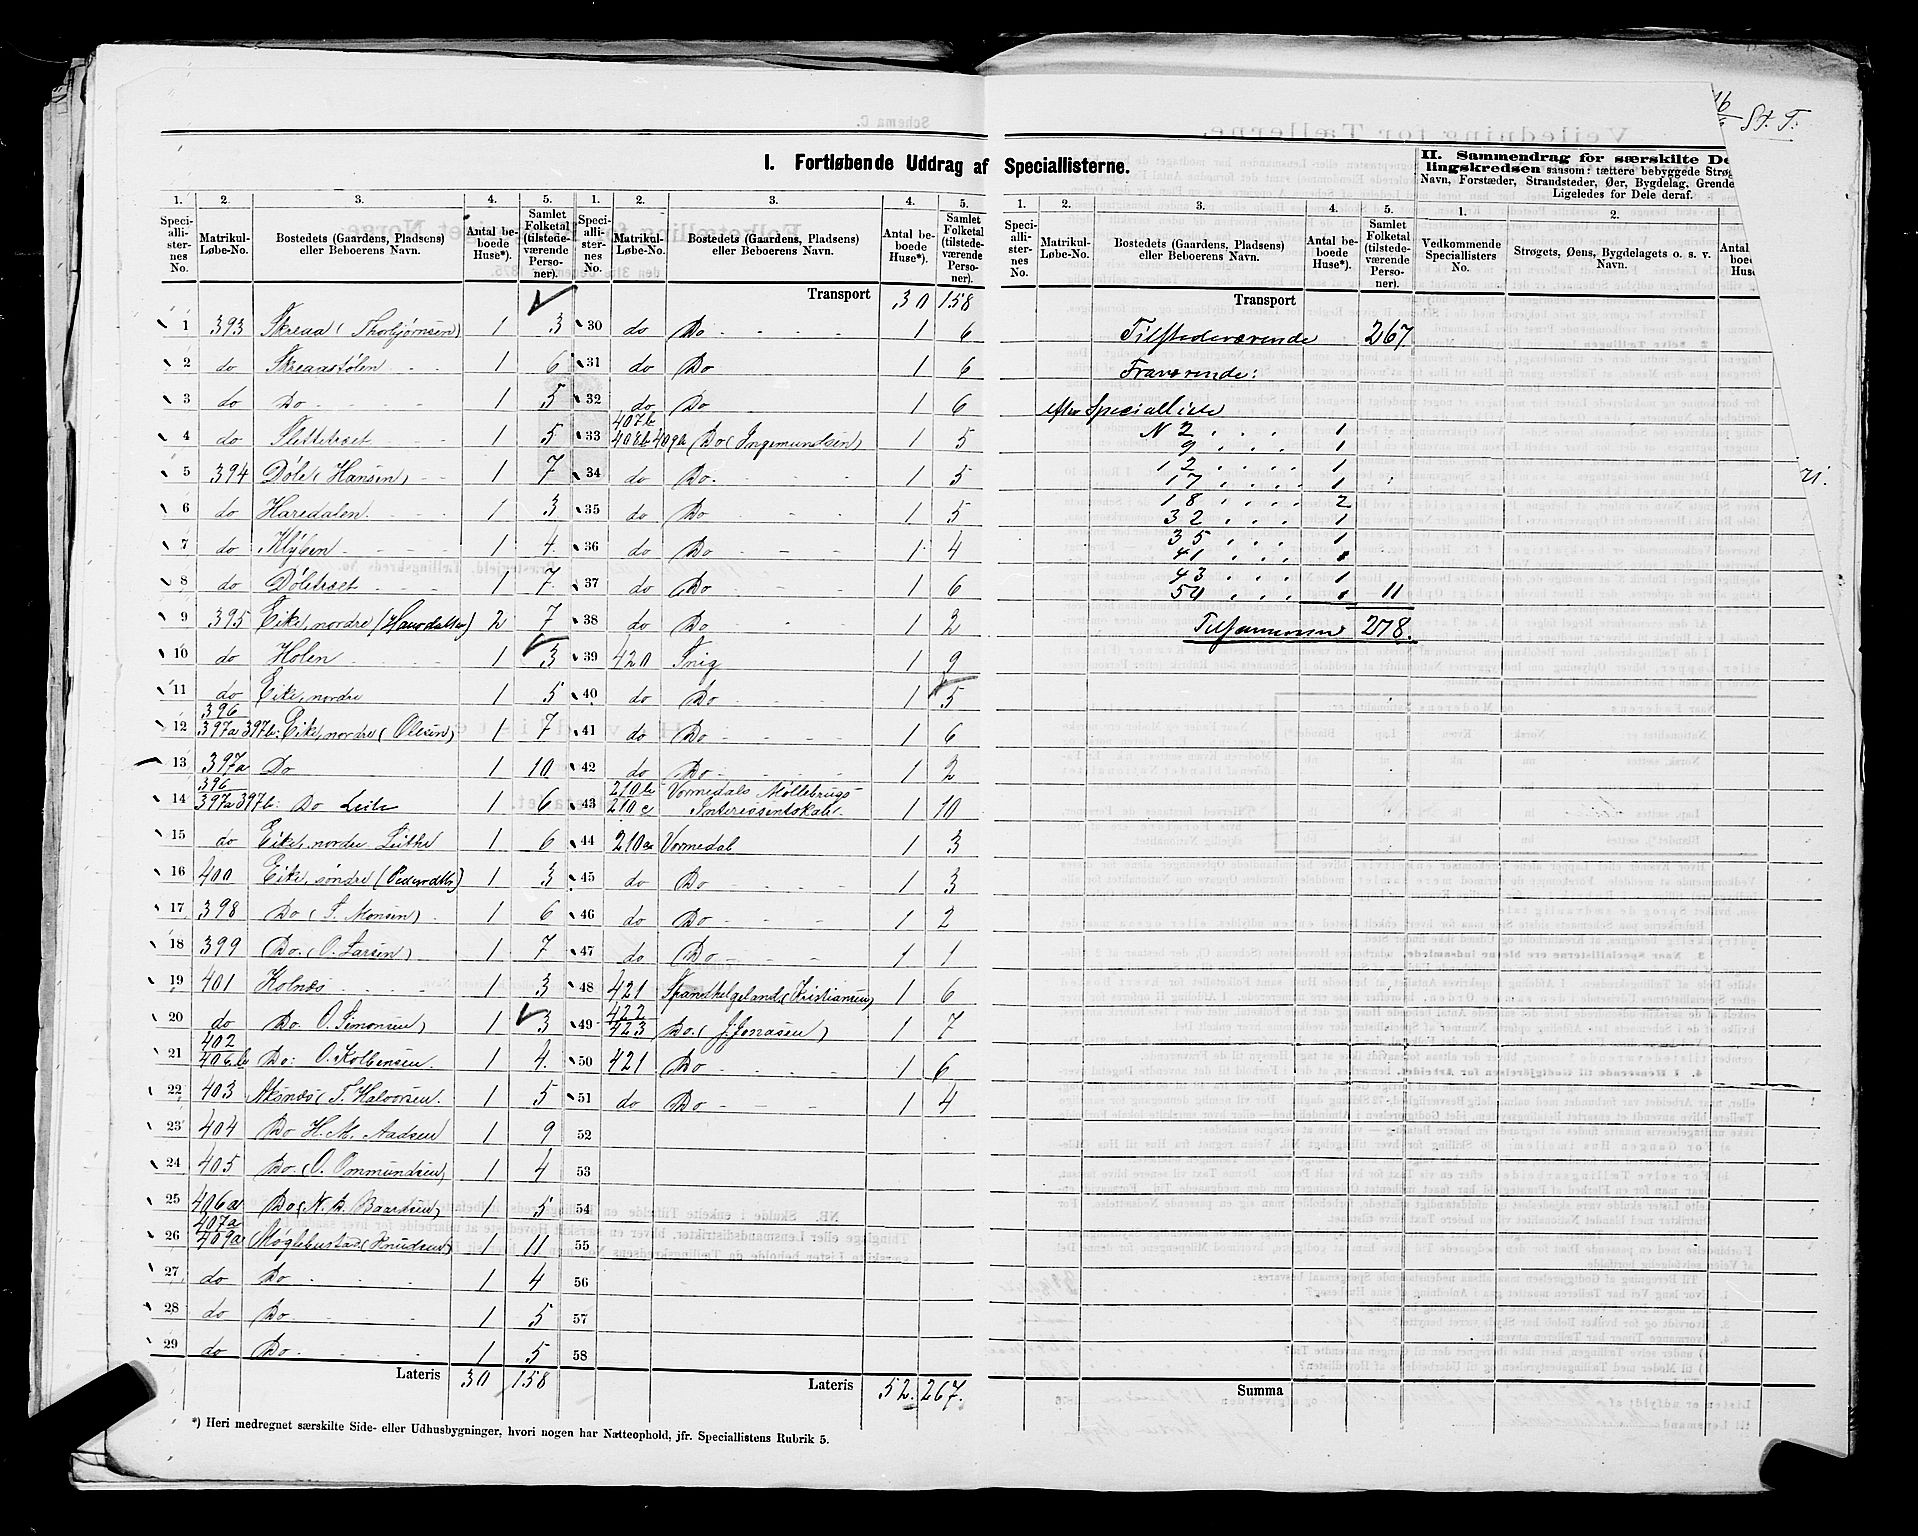 16
St. T.
I. Fortløbende Uddrag af Speciallisterne.
II. Sammendrag for særskilte De
lingskredsen saasom: tættere bebyggede Strøg
Navn, Forstæder, Strandsteder, Øer, Bygdelag, Grende
Ligeledes for Dele deraf.
1. 2. 3. 4. 5. 1. 2. 3. 4. 5. 1. 2. 3. 4. 5. 1. 2.
Speciallisternes No. Matrikul-Løbe-No. Bostedets (Gaardens, Pladsens) eller Beboerens Navn. Antal beboede Huse*). Samlet Folketal (tilstedeværende Personer).
Speciallisternes No. Matrikul-Løbe-No. Bostedets (Gaardens, Pladsens) eller Beboerens Navn. Antal beboede Huse*). Samlet Folketal (tilstedeværende Personer).
Speciallisternes No. Matrikul-Løbe-No. Bostedets (Gaardens, Pladsens) eller Beboerens Navn. Antal beboede Huse*). Samlet Folketal (tilstedeværende Personer).
Vedkommende Speciallisters No. Strøgets, Øens, Bygdelagets o. s. v. Navn. Antal boede Huse
1 393 Skreaa (Thorbjørnsen) 1 3
2 do Skreaastølen 1 6
3 do Do 1 5
4 do Slettetræet 1 5
5 394 Døle (Hansen) 1 7
6 do Haredalen 1 3
7 do Kleven 1 4
8 do Døletræet 1 7
9 395 Eike, nordre 2 7
10 do Holen 1 3
11 do Eike, nordre 1 5
12 396 397a 397b: Eike, nordre (Olesen) 1 7
13 397a Do 1 10
14 396 397a 397b: Do Leite 1 6
15 do Eike, nordre Leithe 1 6
16 400 Eike, søndre 1 3
17 398 Do (S. Monsen) 1 6
18 399 Do. (O. Larsen) 1 7
19 401 Holnæs 1 3
20 do Do. O. Simonsen) 1 3
21 402 406b Do: O. Kolbensen. 1 4.
22 403 Aksnæs (T. Halvorsen. 1 5
23 404 Do H. M. Aadsen 1 9
24 405 Do. (O. Ommundsen) 1 4
25 406a Do (N. B. Baardsen) 1 5
26 407a 409a Møglebustad (Knudsen) 1 11
27 do Do 1 4
28 do Do 1 5
29 do Do 1 5
Lateris 30 158
Transport 30 158
30 do Do 1 6
31 do Do 1 6
32 do Do 1 6
33 407b 408b 409b Do (Ingemundsen) 1 5
34 do Do. 1 5
35 do Do 1 5
36 do Do 1 4
37 do Do 1 6
38 do Do 1 2
39 420 Snig 1 9
40 do Do 1 5
41 do Do 1 6
42 do Do 1 2
43 210b 210c Vormedals Møllebrugs Interessentskab. 1 10
44 210a Vormedal 1 3
45 do Do 1 3
46 do Do 1 2
47 do Do 1 1
48 421 Spanskhelgeland (Kristiansen) 1 6
49 422 423 Do. (J. Jonasen) 1 7
50 421 Do 1 6
51 do Do 1 4
52
53
54
55
56
57
58
Lateris 52. 267.
Transport
Tilstedeværende 267
Fraværende:
efter Specialliste
N 2 1
9 1
12 1
17 1
18 2
32 1
35 1
41 1
43 1
50 1 11
Tilsammen 278.
21.
Summa
*) Heri medregnet særskilte Side- eller Udhusbygninger, hvori nogen har Natteophold, jfr. Speciallistens Rubrik 5.